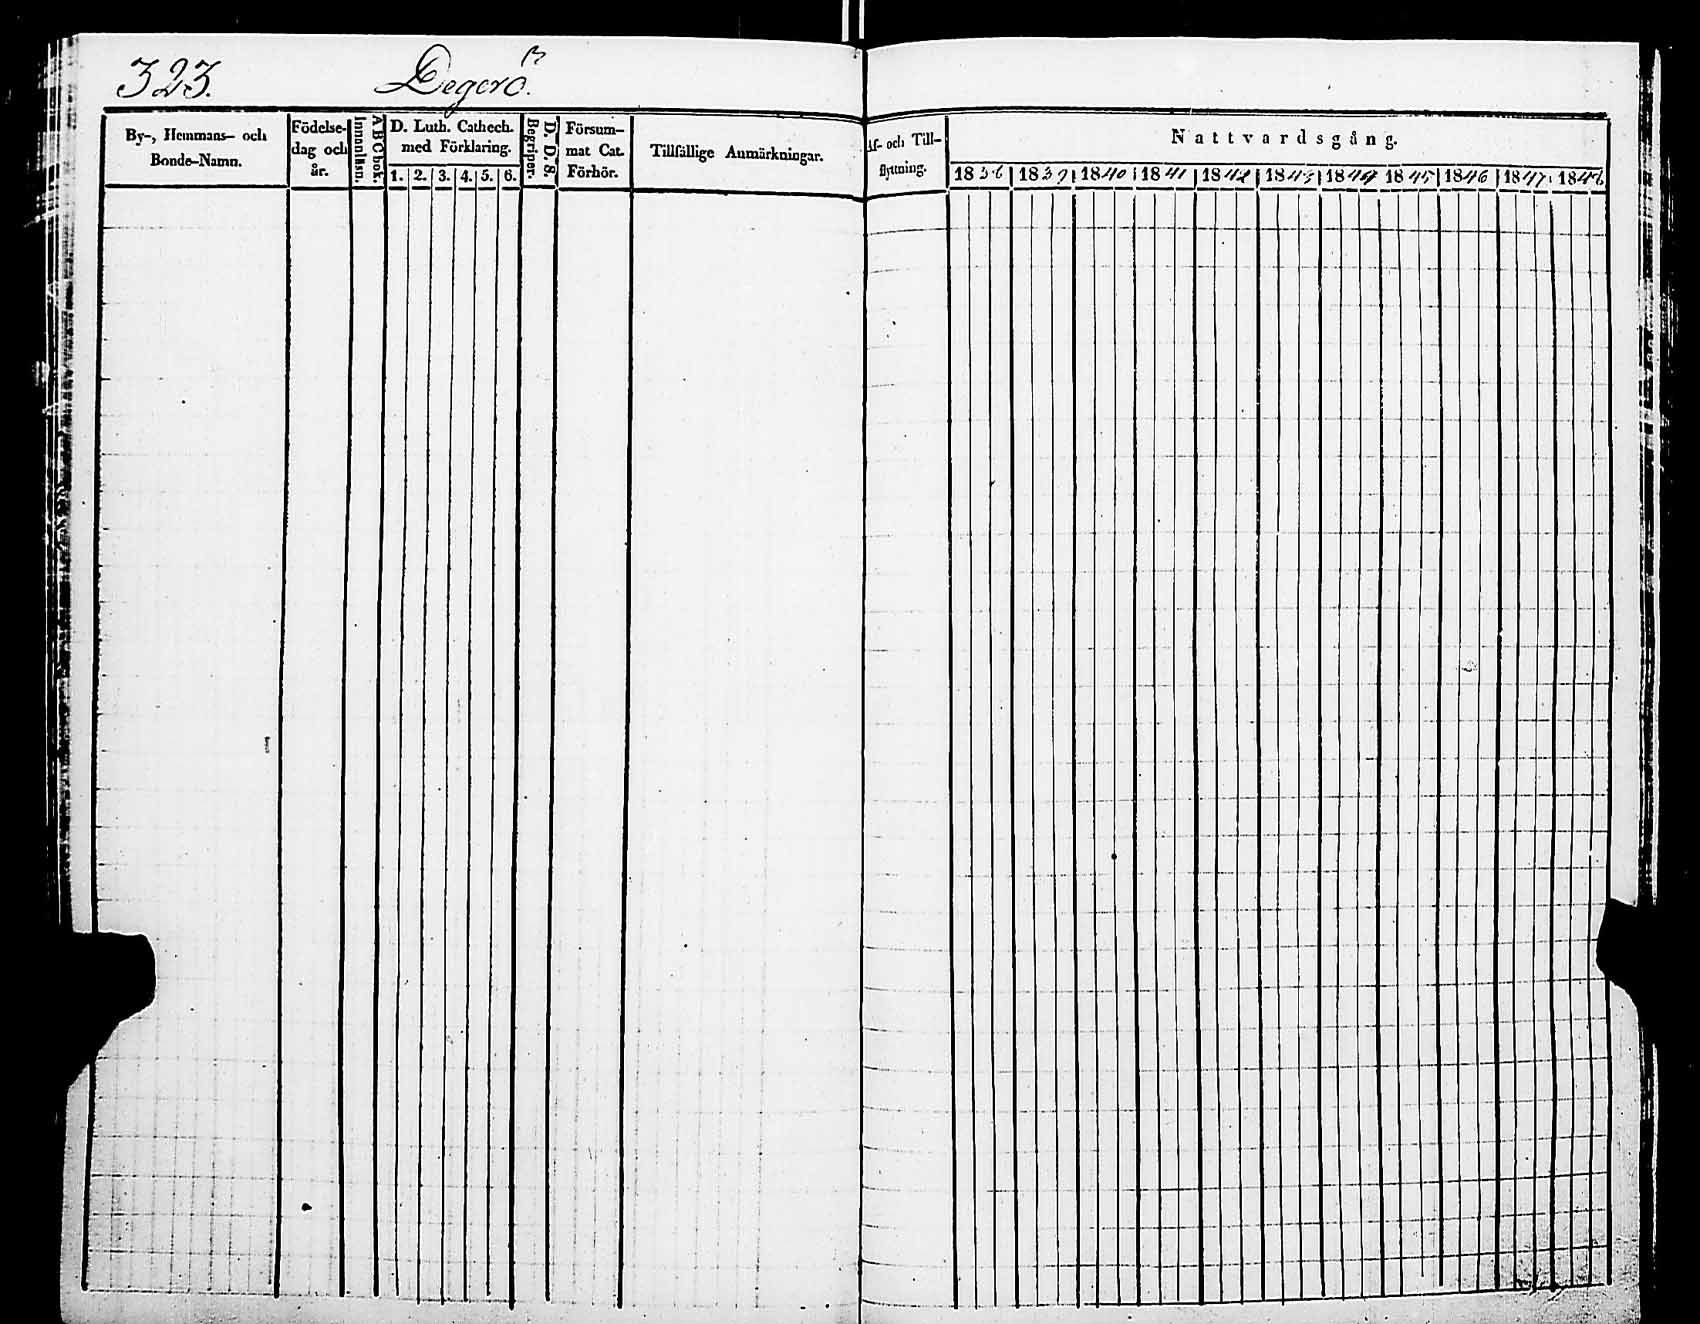 323. Degerö.
By-, Hemmans- och Bonde-Namn.
Födelse-dag och år.
Innantban.
A B C bok.
D. Luth. Cathech. med Förklaring.
1. 2. 3. 4. 5. 6.
Begriper.
D. D. S.
Försum-mat Cat. Förhör.
Tillfällige Anmärkningar.
Af- och Till-flyttning.
Nattvardsgång.
1836 1839 1840 1841 1842 1843 1844 1845 1846 1847 1848